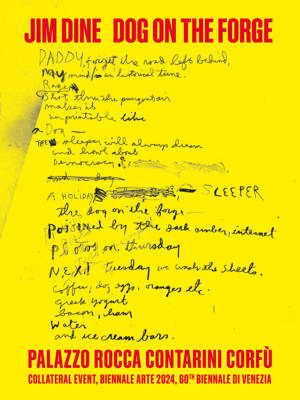 JIM DINE DOG ON THE FORGE
DADDY, forget the road left behind,
My mind/is an historical time.
Rages
Shot thru the pungent air
makes it
imprintable like
a Dog —
THE sleeper will always dream
and howl about
Democracy's
A HOLIDAY SLEEPER
the dog on the forge —
Poisoned by the dark amber, internet
Plows on thursday
N.E.X.T Tuesday we wash the sheets.
coffee, dog eggs, oranges etc.
greek yogurt
bacon, ham
Water
and ice cream bars.
PALAZZO ROCCA CONTARINI CORFÙ
COLLATERAL EVENT, BIENNALE ARTE 2024, 60TH BIENNALE DI VENEZIA